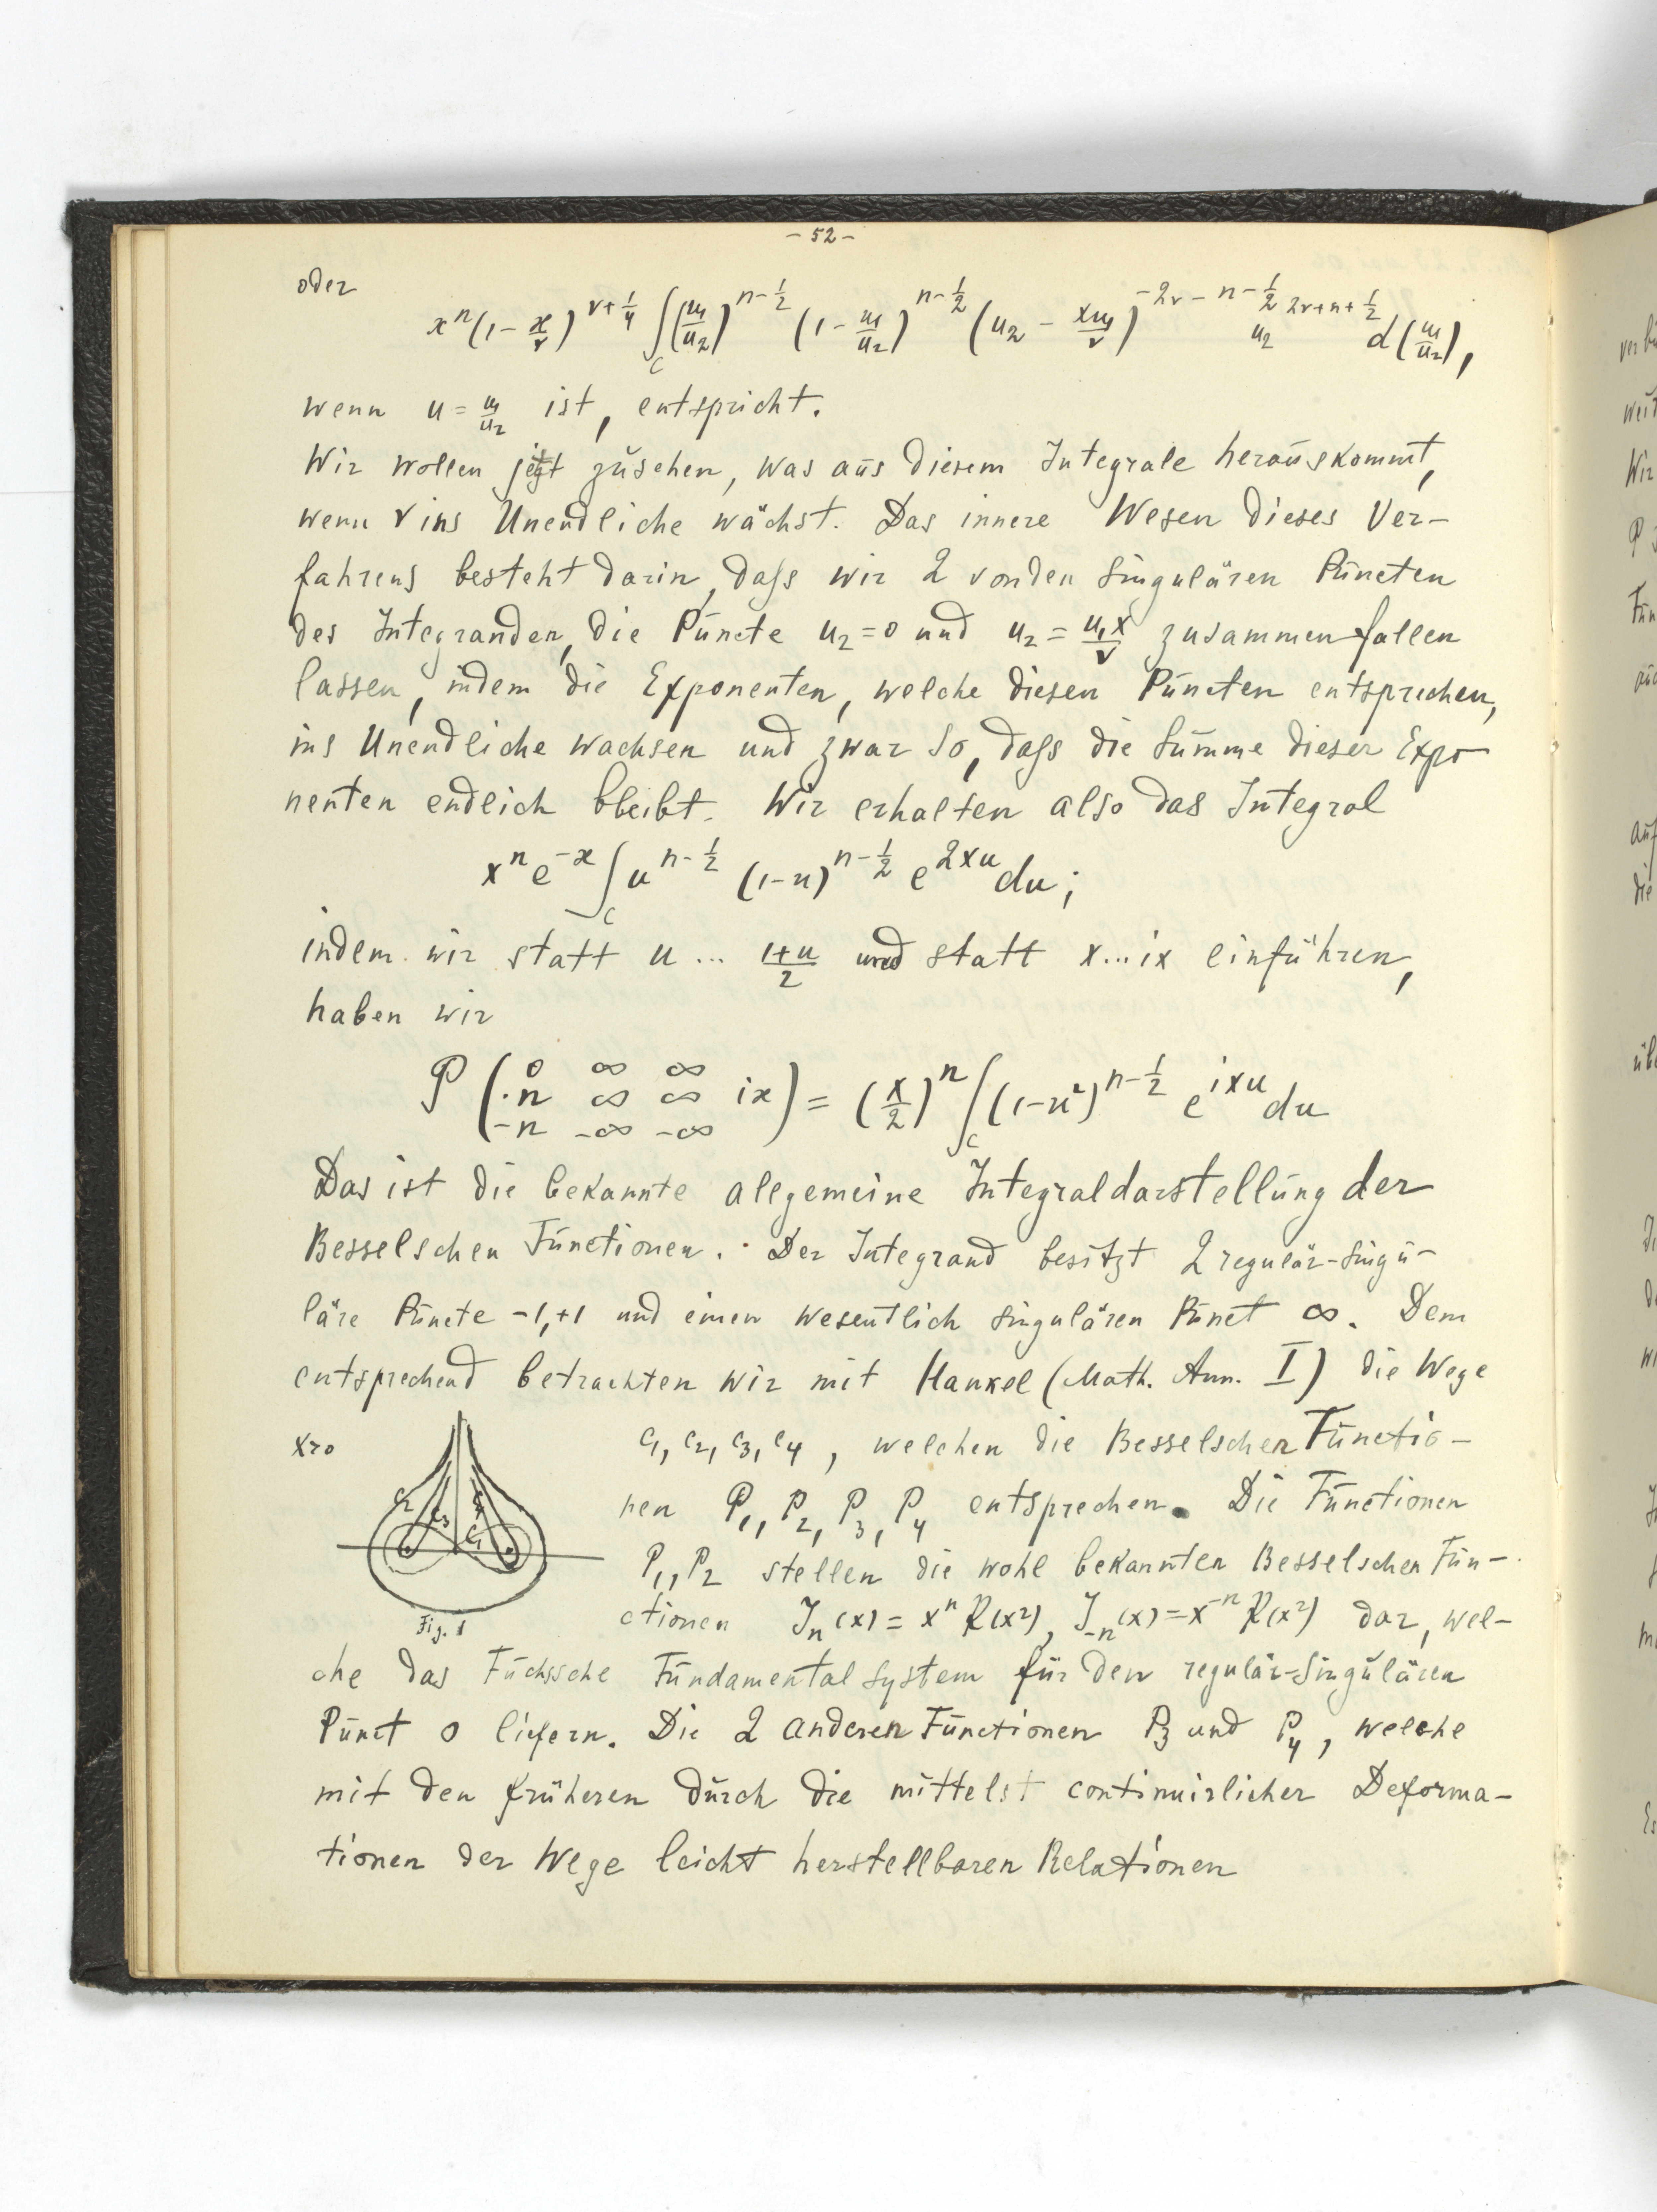 - 52 -
oder
x^n (1 - x/ν)^{ν+1/4} ∫_c (u₁/u₂)^{n-1/2} (1 - u₁/u₂)^{n-1/2} (u₂ - xu₁/ν)^{-2ν-n-1/2} u₂^{2ν+n+1/2} d(u₁/u₂),
wenn u = u₁/u₂ ist, entspricht.
Wir wollen jetzt zusehen, was aus diesem Integrale herauskommt,
wenn ν ins Unendliche wächst. Das innere Wesen dieses Ver-
fahrens besteht darin, dass wir 2 von den singulären Puncten
des Integranden, die Puncte u₂=0 und u₂ = u₁x/ν zusammenfallen
lassen, indem die Exponenten, welche diesen Puncten entsprechen,
ins Unendliche wachsen und zwar so, dass die Summe dieser Expo-
nenten endlich bleibt. Wir erhalten also das Integral
x^n e^{-x} ∫_c u^{n-1/2} (1-u)^{n-1/2} e^{2xu} du;
indem wir statt u ... (1+u)/2 und statt x...ix einführen,
haben wir
P ( 0 ∞ ∞
·n ∞ ∞ ix ) = (x/2)^n ∫_c (1-u²)^{n-1/2} e^{ixu} du
-n -∞ -∞
Das ist die bekannte allgemeine Integraldarstellung der
Besselschen Functionen. Der Integrand besitzt 2 regulär-singu-
läre Puncte -1,+1 und einen wesentlich singulären Punct ∞. Dem
entsprechend betrachten wir mit Hankel (Math. Ann. I) die Wege
x>0
c₁, c₂, c₃, c₄, welchen die Besselschen Functio-
nen P₁, P₂, P₃, P₄ entsprechen. Die Functionen
P₁, P₂ stellen die wohl bekannten Besselschen Fun-
ctionen J_n(x) = x^n R(x²), J_{-n}(x) = x^{-n} R(x²) dar, wel-
c₂ c₃ c₄ c₁
Fig. 1
che das Fuchssche Fundamentalsystem für den regulär-singulären
Punct 0 liefern. Die 2 anderen Functionen P₃ und P₄, welche
mit den früheren durch die mittelst continuirlicher Deforma-
tionen der Wege leicht herstellbaren Relationen